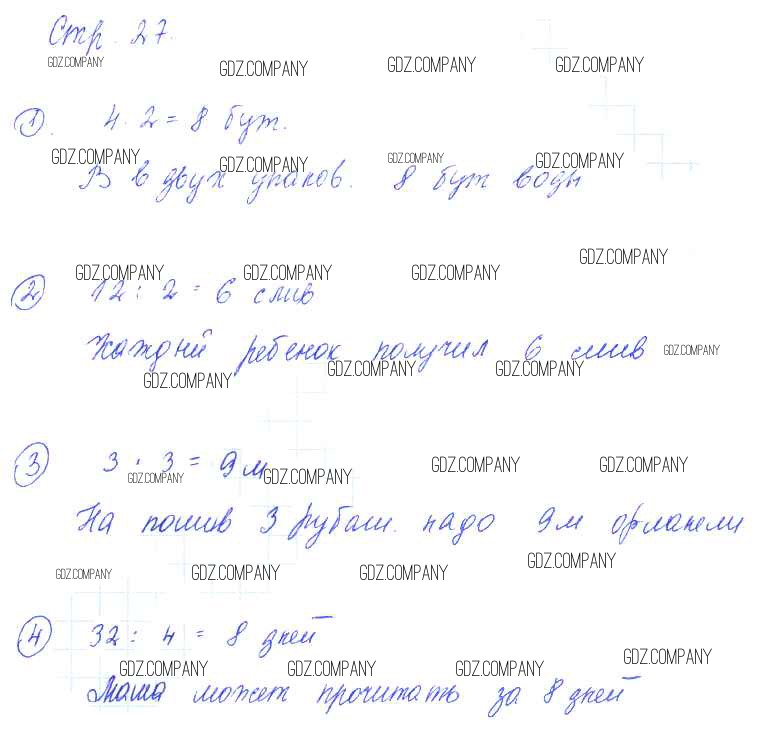 Стр. 27.
GDZ.COMPANY GDZ.COMPANY GDZ.COMPANY GDZ.COMPANY
1. 4 · 2 = 8 бут.
GDZ.COMPANY GDZ.COMPANY GDZ.COMPANY GDZ.COMPANY
В в двух упаков. 8 бут воды
GDZ.COMPANY GDZ.COMPANY GDZ.COMPANY GDZ.COMPANY
2 12 : 2 = 6 слив
Каждый ребенок получил 6 слив GDZ.COMPANY
GDZ.COMPANY GDZ.COMPANY GDZ.COMPANY
3 3 · 3 = 9 м
GDZ.COMPANY GDZ.COMPANY GDZ.COMPANY GDZ.COMPANY
На пошив 3 рубаш. надо 9м фланели
GDZ.COMPANY GDZ.COMPANY GDZ.COMPANY GDZ.COMPANY
4 32 : 4 = 8 дней
GDZ.COMPANY GDZ.COMPANY GDZ.COMPANY GDZ.COMPANY
Мама может прочитать за 8 дней